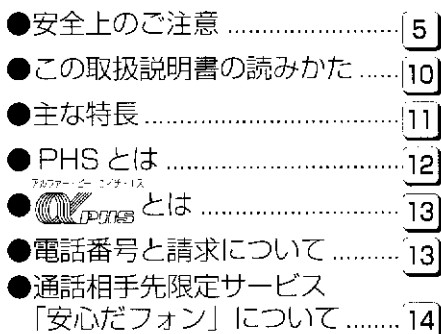 ●安全上のご注意 ........................ 5
●この取扱説明書の読みかた ...... 10
●主な特長 ..................................... 11
●PHSとは ................................... 12
アルファー・ピーエイチ・エス
●αPHSとは ............................... 13
●電話番号と請求について ......... 13
●通話相手先限定サービス
「安心だフォン」について ........ 14